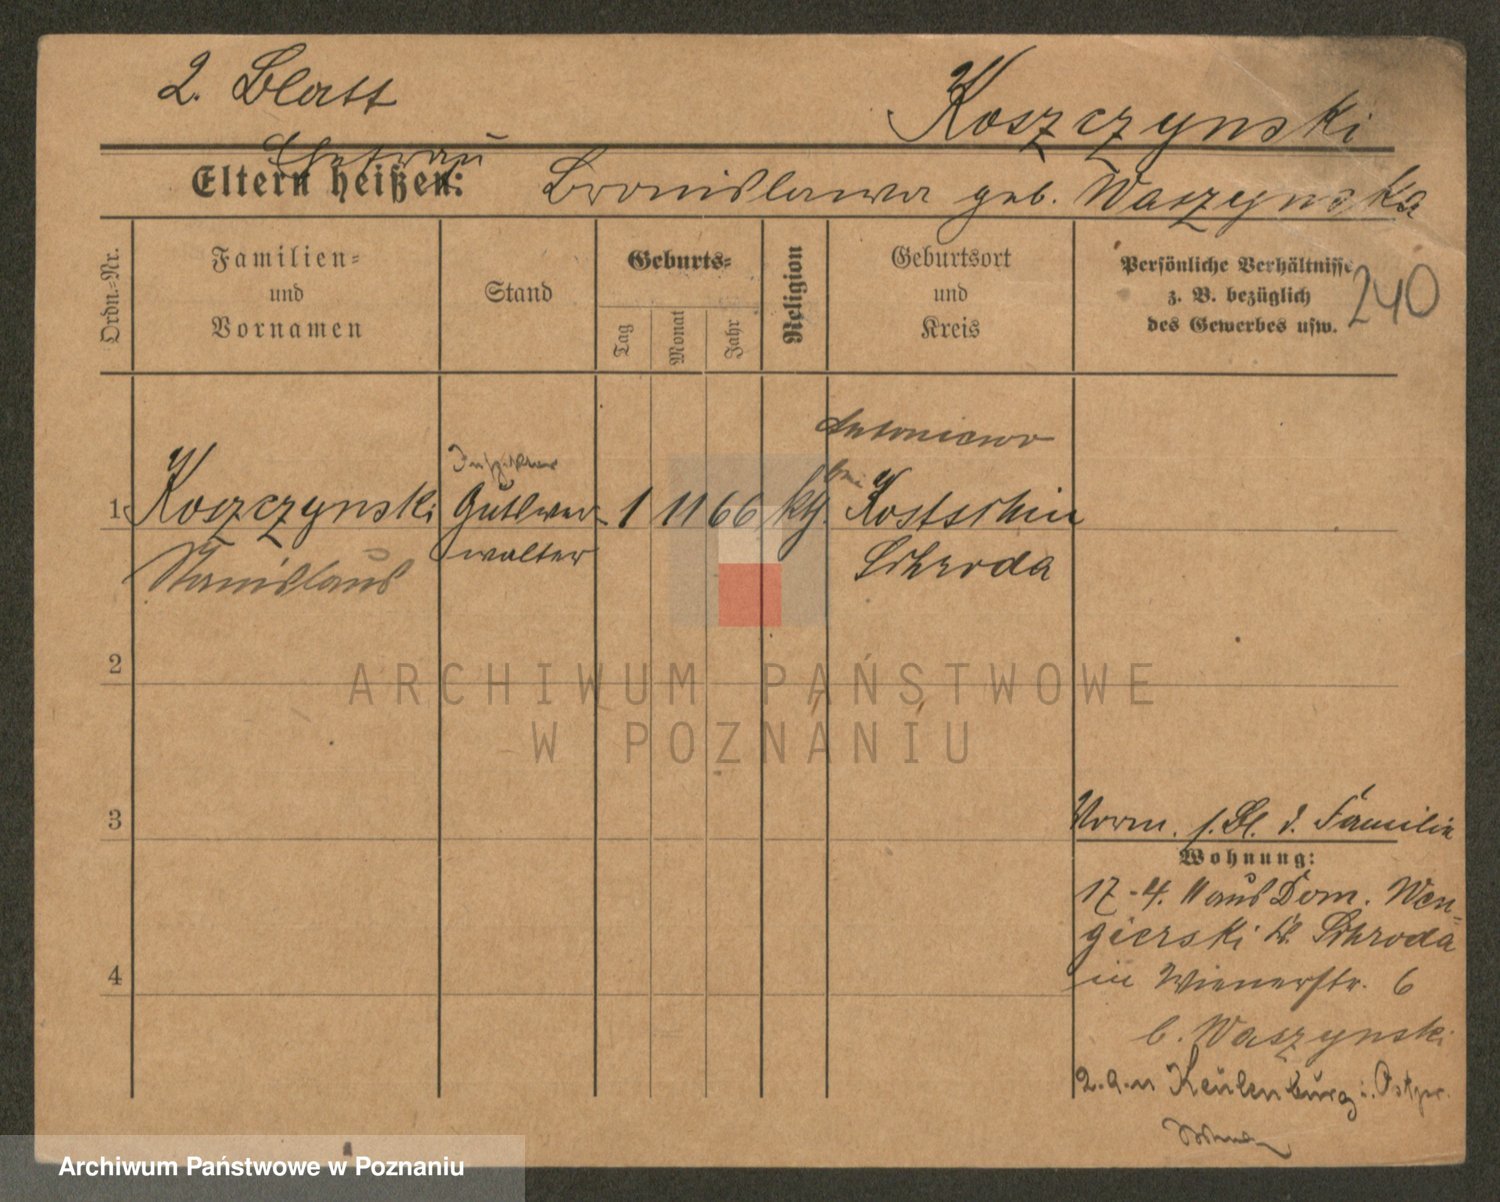 2. Blatt
Koszczynski
Ehefrau
Eltern heißen: Bronislawa geb. Waszynska
Ordn.-Nr.
Familien-
und
Vornamen
Stand
Geburts-
Tag
Monat
Jahr
Religion
Geburtsort
und
Kreis
Persönliche Verhältnisse
z. B. bezüglich
des Gewerbes usw.
240
Antoniewo
Inspektor
bei
1 Koszczynski Gutsver- 1 11 66 kth. Kostschin
Stanislaus walter Schroda
2
3
Vorm. s. Bl. d. Familie
Wohnung:
17-4. 11 aus Dom. Wen-
gierski Kr. Schroda
in Wienerstr. 6
b. Waszynski
4
2.9.11 Keulenburg i. Ostpr.
ARCHIWUM PAŃSTWOWE
W POZNANIU
Archiwum Państwowe w Poznaniu